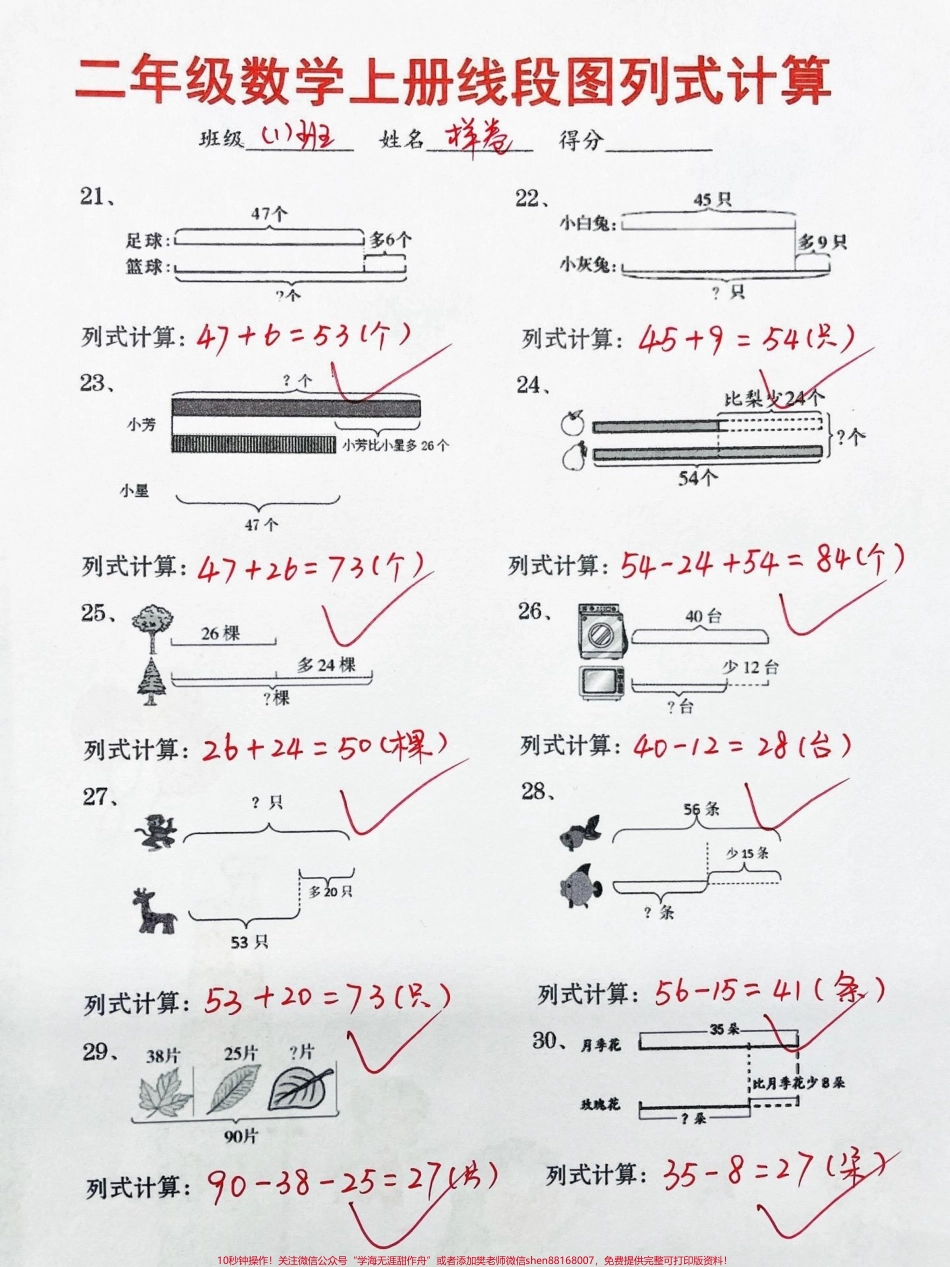 二年级数学上册线段图列式计算
班级 (1)班 姓名 样卷 得分
21、
47个
足球:
多6个
篮球:
?个
列式计算: 47+6=53(个)
22、
45只
小白兔:
多9只
小灰兔:
? 只
列式计算: 45+9=54(只)
23、
? 个
小芳
小芳比小星多26个
小星
47个
列式计算: 47+26=73(个)
24、
比梨少24个
?个
54个
列式计算: 54-24+54=84(个)
25、
26棵
多24棵
?棵
列式计算: 26+24=50(棵)
26、
40台
少12台
?台
列式计算: 40-12=28(台)
27、
? 只
多20只
53只
列式计算: 53+20=73(只)
28、
56条
少15条
? 条
列式计算: 56-15=41(条)
29、
38片 25片 ?片
90片
列式计算: 90-38-25=27(片)
30、
35朵
月季花
比月季花少8朵
玫瑰花
? 朵
列式计算: 35-8=27(朵)
10秒钟操作！关注微信公众号“学海无涯甜作舟”或者添加樊老师微信shen88168007，免费提供完整可打印版资料！